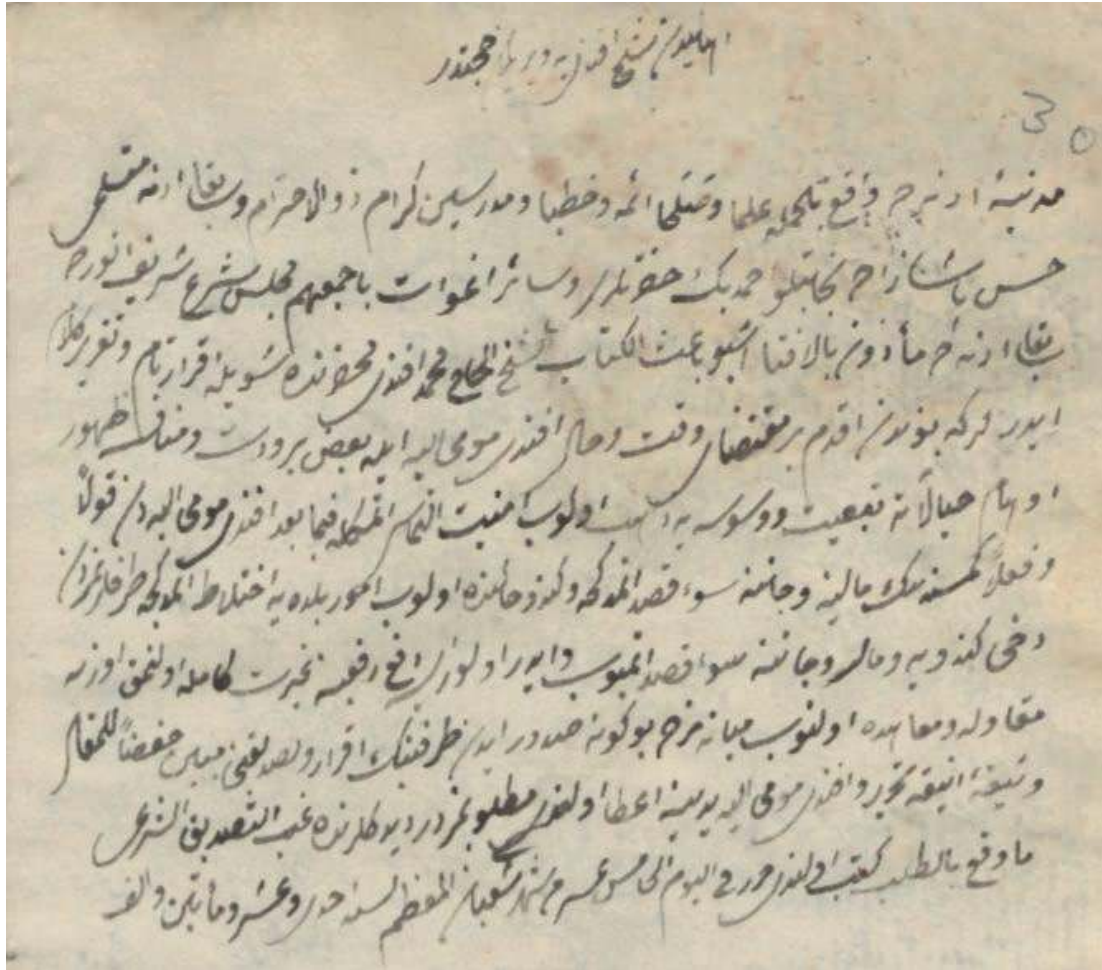 اهاليدن شيخ افندی‌يه ويريلان حجتدر
30
مدينهٔ ادرنه‌ده واقع بالجمله علما وصلحا ائمه وخطبا ومدرسين كرام ذوالاحترام وسابقا ادرنه متسلمى
حسن پاشا زاده نجابتلو احمد بك حضرتلرى وسائر اغوات باجمعهم مجلس شرع شريف انورده
سابقا ادرنه‌ده مأذون بالافتا اشبو باعث الكتاب شيخ الحاج محمد افندى محضرنده شويله اقرار تام وتقرير كلام
ايدرلر كه بوندن اقدم بر مقتضاى وقت وحال افندى مومى اليه ايله بعض برودت ومنافرت ظهور
اوهام خيالاته تبعيت ووسوسه‌يه اولوب امنيت التماس اتمكله فيما بعد افندى مومى اليه دن قولاً
وفعلاً كمسنه‌نك مالينه وجاننه سوء قصد اتمدكجه وكندو حالنده اولوب امور بلده‌يه اختلاط اتمدكجه طرفلرمزدن
دخى كندويه ومالى وجاننه سوء قصد اتميوب وايدر اولور ايسه
مقاوله ومعاهده اولنوب ميانه‌مزده بوكونه صدور ايدن طرفينك اقرار وتصديقنى مبين حفظاً للمقال
وثيقهٔ انيقه تحرير وافندى مومى اليه يدينه اعطا اولنمق مطلوبمزدر ديدكلرنده غب التصديق الشرعى
ما وقع بالطلب كتب اولندى حرر فى اليوم الخامس عشر من شهر شعبان المعظم لسنه احدى وعشر ومأتين والف